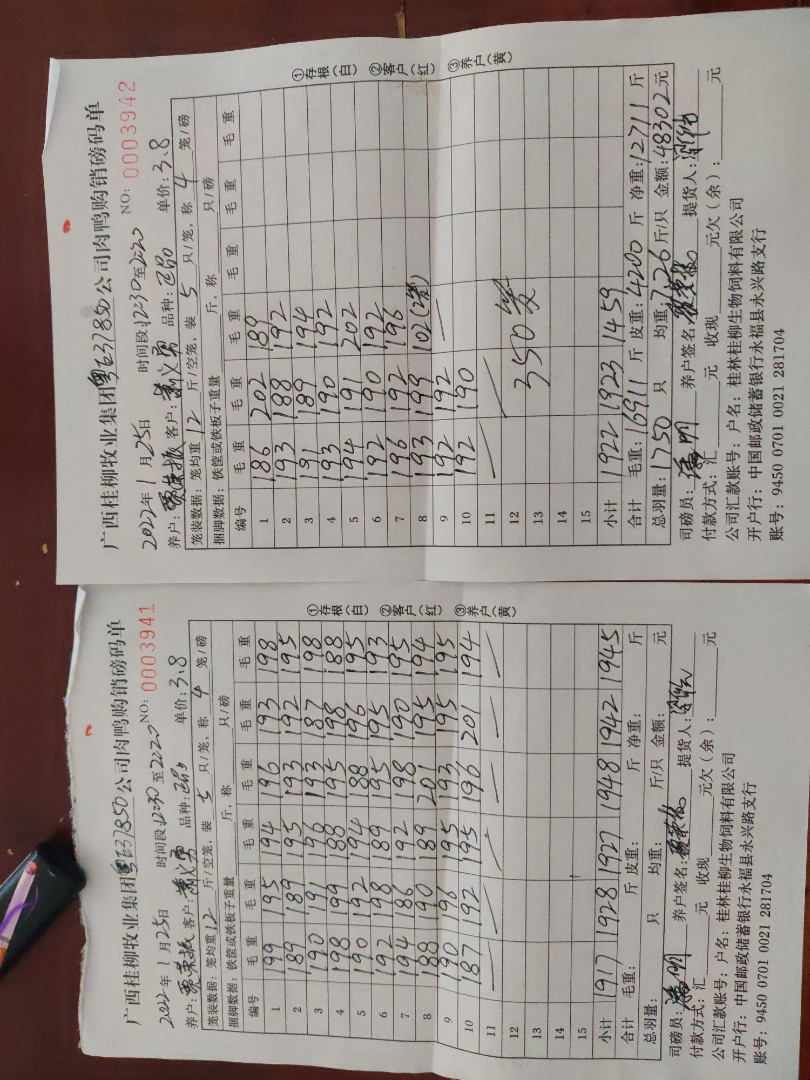 广西桂柳牧业集团粤E37850公司肉鸭购销磅码单
2022年 1 月 25日 时间段:12:30至2:20 NO: 0003941
养户: 客户: 品种: 单价: 3.8
笼装数据: 笼均重 12 斤/空笼, 装 5 只/笼, 称 4 笼/磅
捆脚数据: 铁筐或铁板子重量 斤, 称 只/磅
编号 毛重 毛重 毛重 毛重 毛重 毛重
1 199 195 194 196 193 198
2 189 189 195 193 192 195
3 190 191 196 193 187 198
4 198 199 188 195 198 188
5 190 192 194 188 196 195
6 192 198 189 195 195 193
7 194 186 192 198 190 195
8 188 190 189 201 195 194
9 190 196 195 193 195 195
10 187 192 195 196 201 194
11
12
13
14
15
小计 1917 1928 1927 1948 1942 1945
合计 毛重: 斤 皮重: 斤 净重: 斤
总羽量: 只 均重: 斤/只 金额: 元
司磅员: 养户签名: 提货人:
付款方式: 汇 元 收现 元欠(余): 元
公司汇款账号: 户名: 桂林桂柳生物饲料有限公司
开户行: 中国邮政储蓄银行永福县永兴路支行
账号: 9450 0701 0021 281704
①存根(白) ②客户(红) ③养户(黄)
广西桂柳牧业集团粤E37850公司肉鸭购销磅码单
2022年 1 月 25日 时间段:12:30至2:20 NO: 0003942
养户: 客户: 品种: 单价: 3.8
笼装数据: 笼均重 12 斤/空笼, 装 5 只/笼, 称 4 笼/磅
捆脚数据: 铁筐或铁板子重量 斤, 称 只/磅
编号 毛重 毛重 毛重 毛重 毛重 毛重
1 186 202 189
2 193 188 192
3 191 189 194
4 193 190 192
5 194 191 202
6 192 190 192
7 196 192 196
8 193 199 102(2笼)
9 192 192
10 192 190
11
12
13 350笼
14
15
小计 1922 1923 1459
合计 毛重: 16911 斤 皮重: 4200 斤 净重: 12711 斤
总羽量: 1750 只 均重: 7.26 斤/只 金额: 48302 元
司磅员: 养户签名: 提货人:
付款方式: 汇 元 收现 元欠(余): 元
公司汇款账号: 户名: 桂林桂柳生物饲料有限公司
开户行: 中国邮政储蓄银行永福县永兴路支行
账号: 9450 0701 0021 281704
①存根(白) ②客户(红) ③养户(黄)